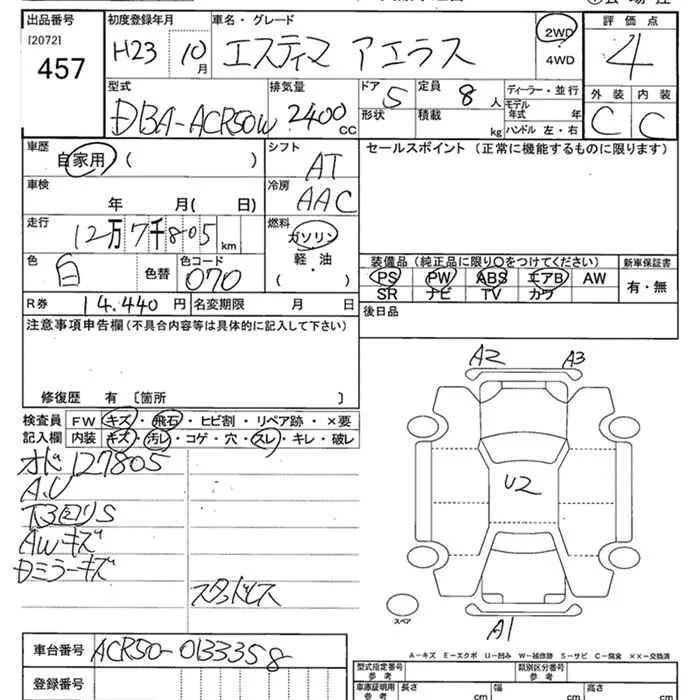 出品番号 初度登録年月 車名・グレード 2WD 評価点
[2072] H23 10月 エスティマ アエラス 4WD 4
457
型式 排気量 ドア 定員 ディーラー・並行 外装 内装
DBA-ACR50W 2400cc 5 8人 モデル年式 年 C C
形状 積載 kg ハンドル 左・右
車歴 シフト セールスポイント(正常に機能するものに限ります)
自家用( ) AT
車検 冷房
年 月( 日) AAC
走行 燃料
12万7千805km ガソリン
色 色替 色コード 軽・油
白 070 ( )
装備品(純正品に限り○をつけてください) 新車保証書
PS PW ABS エアB AW 有・無
SR ナビ TV カワ
R券 14.440円 名変期限 月 日 後日品
注意事項申告欄(不具合内容等は具体的に記入して下さい)
修復歴 有 〔箇所 〕
検査員 FW キズ・飛石・ヒビ割・リペア跡・×要
記入欄 内装 キズ・汚レ・コゲ・穴・スレ・キレ・破レ
127805
A.U
下回りS
AWキズ
Dミラーキズ
スタッドレス
A2 A3
U2
A1
スペア
A−キズ E−エクボ U−凹み W−補修跡 S−サビ C−腐食 ××−交換済
車台番号 ACR50-0133358
登録番号
型式指定番号 参考 類別区分番号 参考
車庫証明用 参考 長さ cm 幅 cm 高さ cm